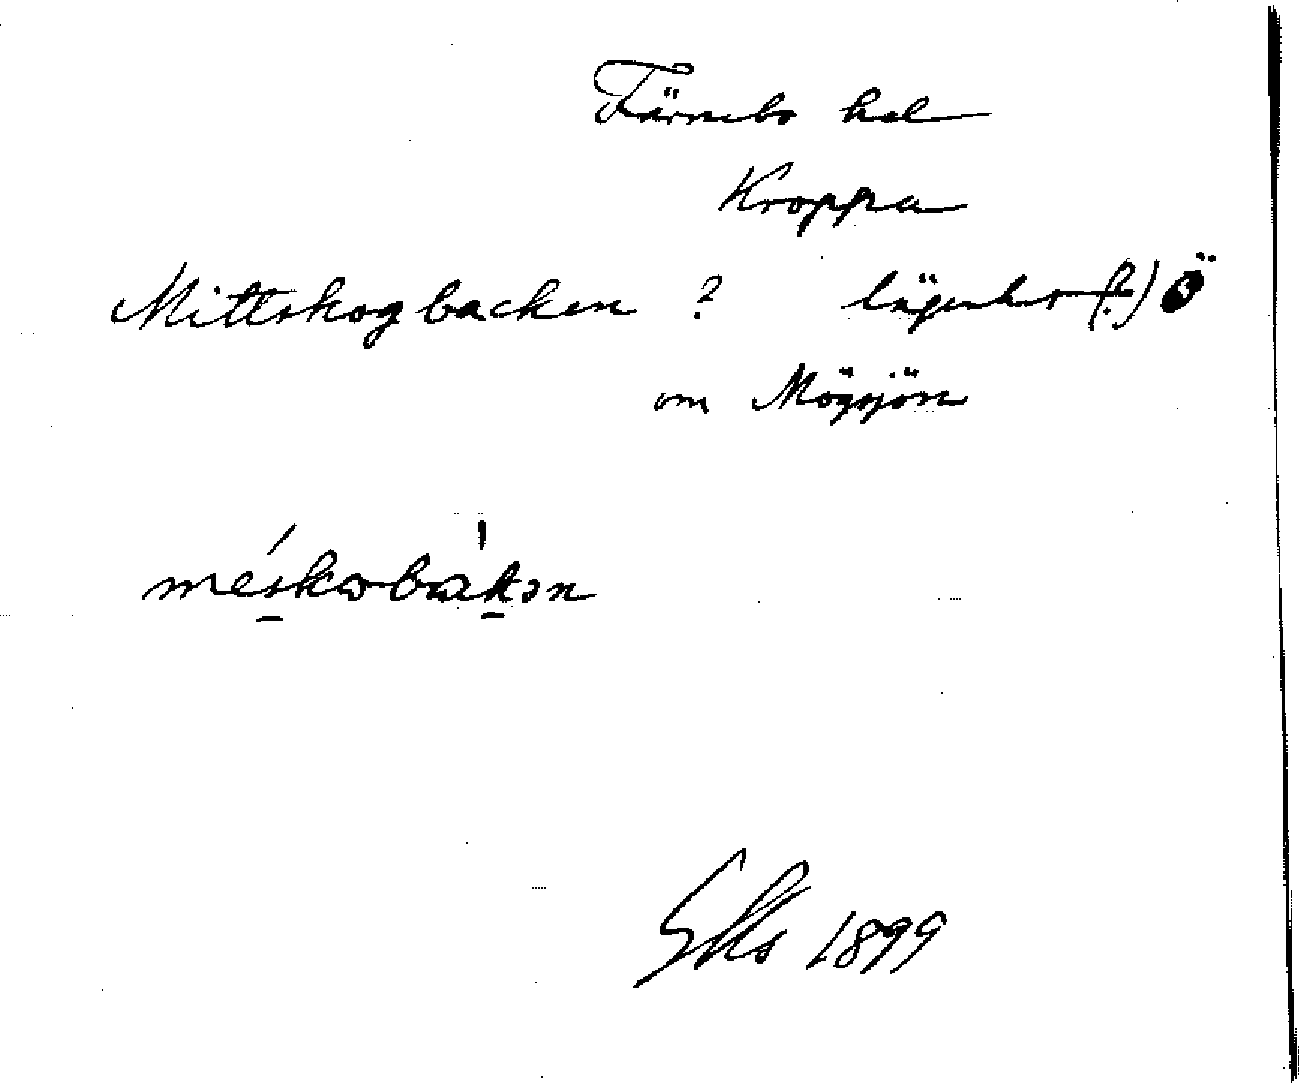 Färnebo hd
Kroppa
Mittskogbacken ? lägenhet (?) Ö
om Mögsjön
méskωbákən
1899